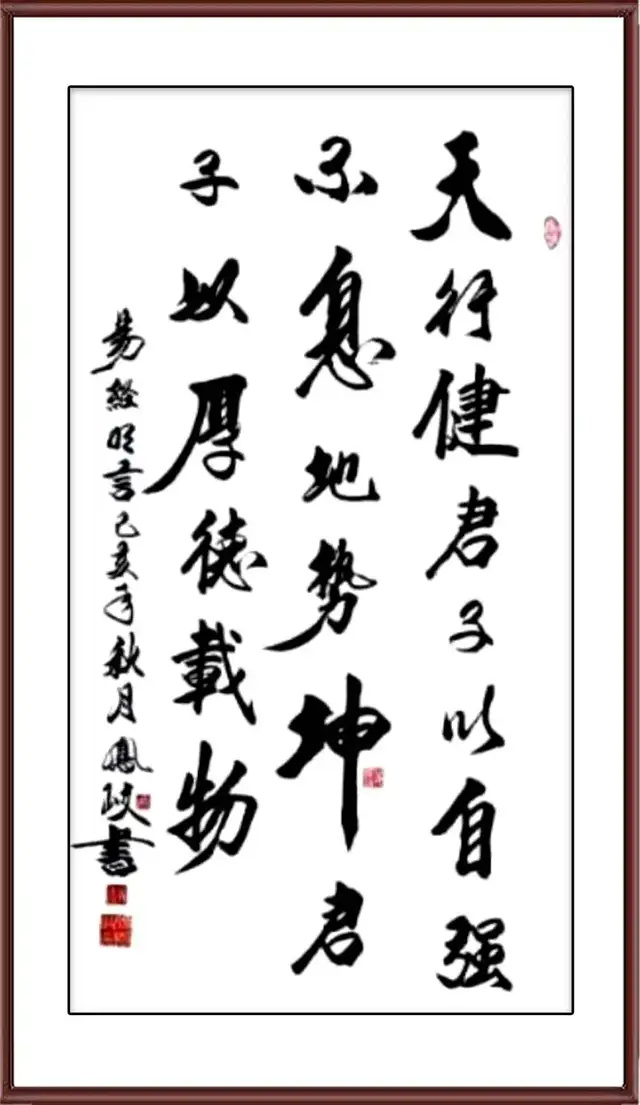 天行健君子以自强
不息地势坤君
子以厚德載物
易经明言己亥年秋月鳳政書